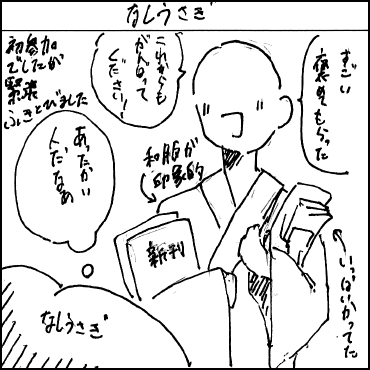 なしうさぎ
すごい
褒めてもらった
これからも
がんばって
ください!
初参加
でしたが
緊張
ふきとびました
和服が
印象的
あったかい
人だなぁ
新刊
いっぱいかってた
なしうさぎ